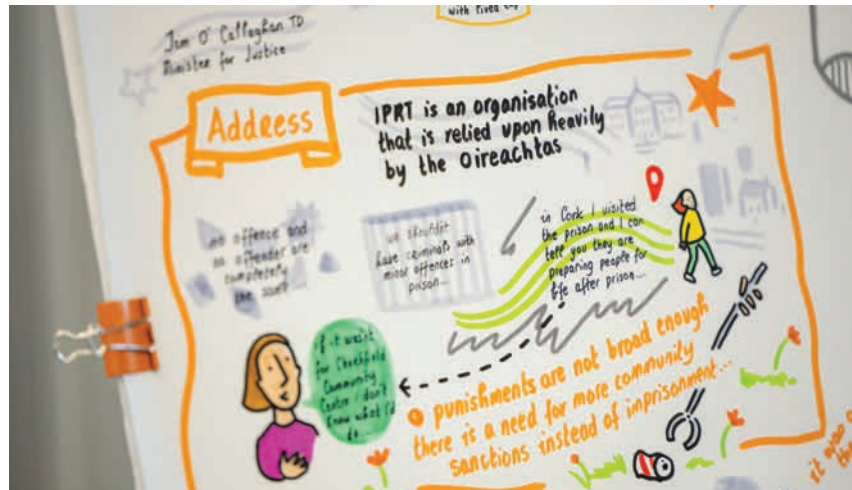 with lived
Jam O'Callaghan TD
Minister for Justice
Address
IPRT is an organisation
that is relied upon heavily
by the Oireachtas
no offence and
no offender are
completely
the same
we shouldn't
have criminals with
minor offences in
prison...
in Cork I visited
the prison and I can
tell you they are
preparing people for
life after prison...
if it wasn't
for Churchfield
Community
Centre I don't
know what I'd
do...
punishments are not broad enough
there is a need for more community
sanctions instead of imprisonment...
it was